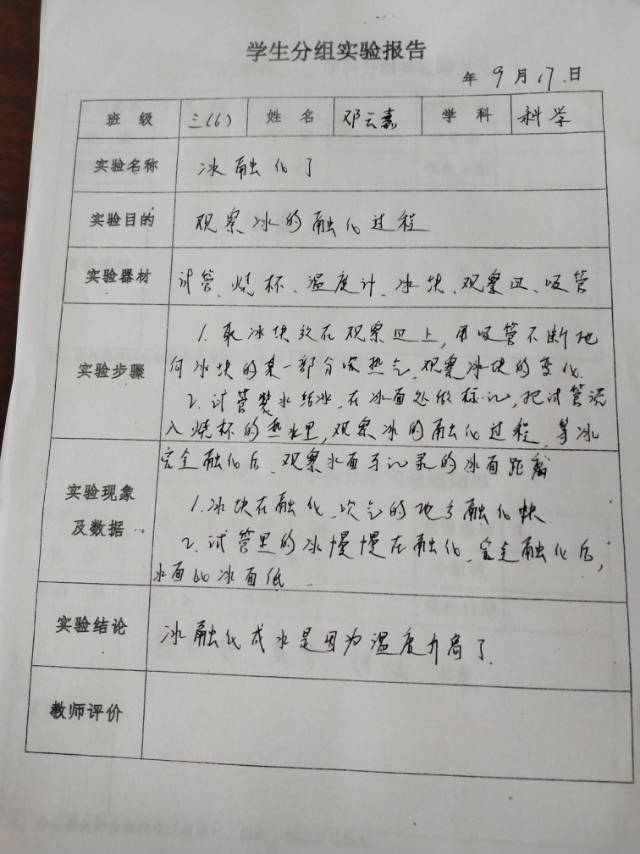 学生分组实验报告
年 9 月 17 日
班 级 三(6) 姓 名 邓云嘉 学 科 科学
实验名称 冰融化了
实验目的 观察冰的融化过程
实验器材 试管、烧杯、温度计、冰块、观察皿、吸管
1. 取冰块放在观察皿上,用吸管不断地
实验步骤 向冰块的某一部分吹热气,观察冰块的变化.
2. 试管装水结冰,在冰面处做标记,把试管浸
入烧杯的热水里,观察冰的融化过程,等冰
完全融化后,观察水面与记录的冰面距离
实验现象 1. 冰块在融化,吹气的地方融化快.
及数据 2. 试管里的冰慢慢在融化,完全融化后,
水面比冰面低.
实验结论 冰融化成水是因为温度升高了.
教师评价